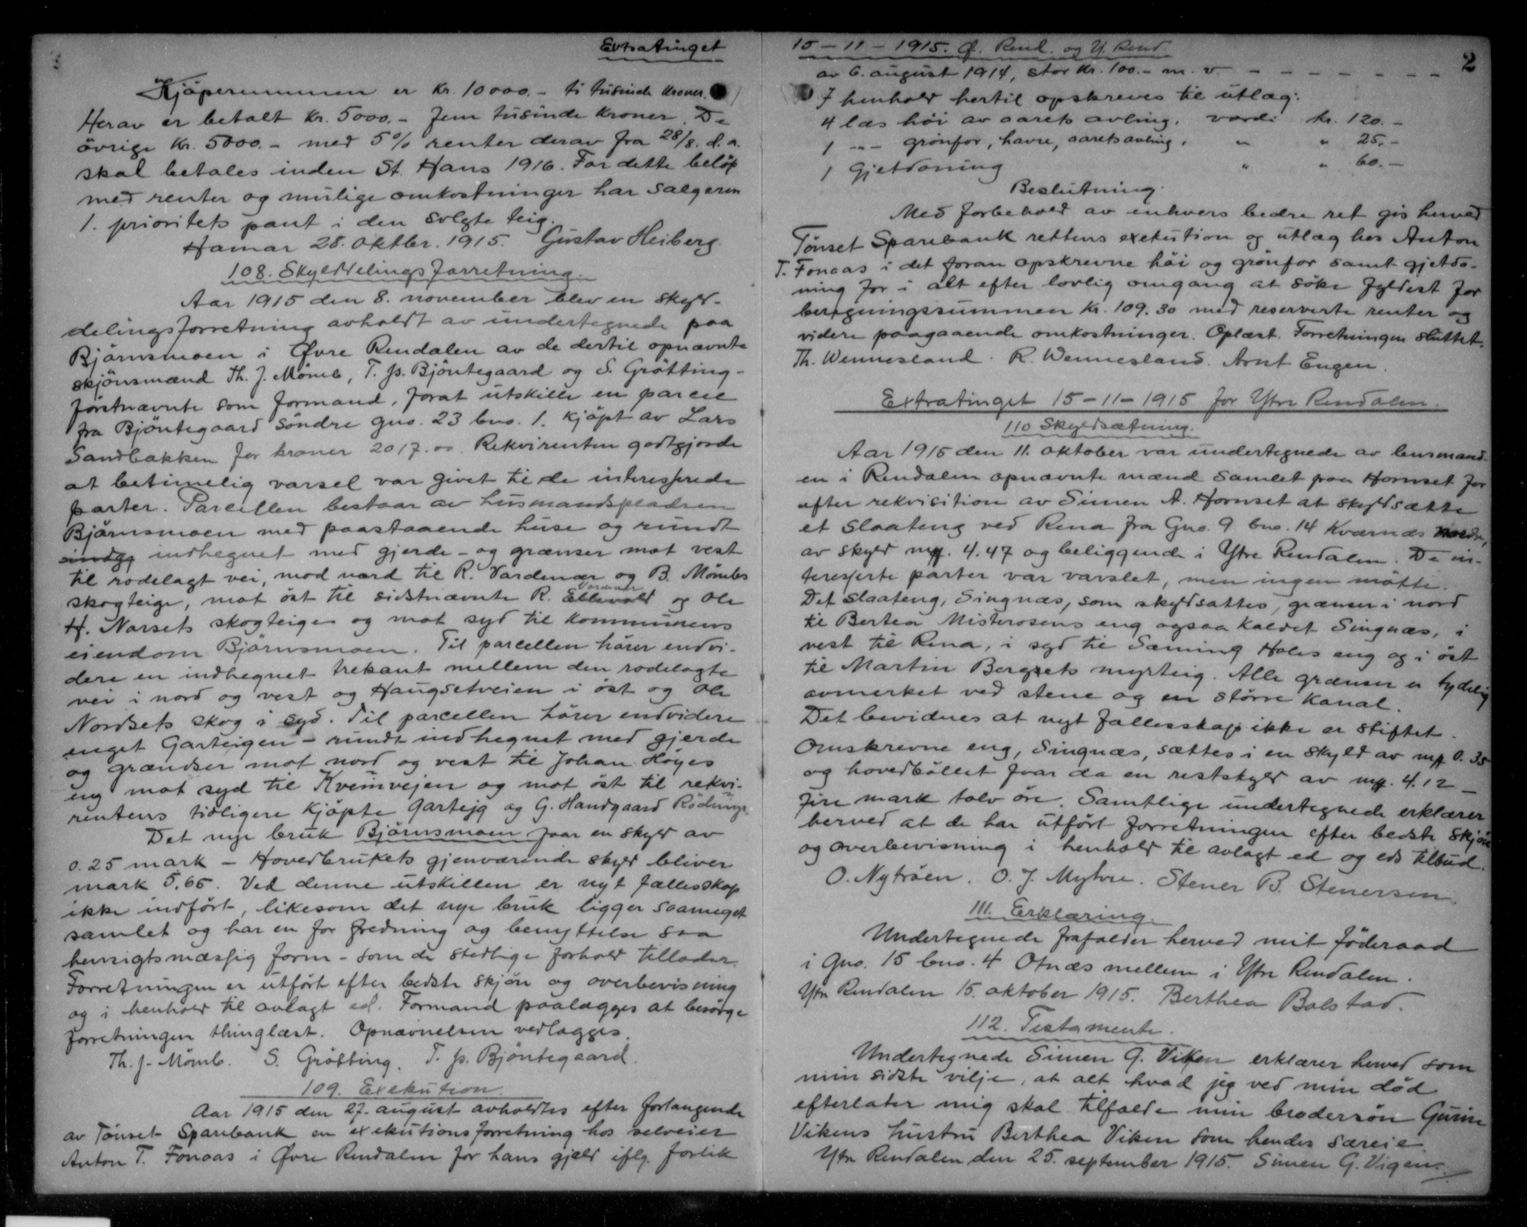 Extratinget
Kjøpesummen er kr. 10000.- ti tusinde kroner.
Herav er betalt kr. 5000.- fem tusinde kroner. De
øvrige kr. 5000.- med 5% renter derav fra 28/8. d.a.
skal betales inden St. Hans 1916. For dette beløp
med renter og mulige omkostninger har sælgeren
1. prioritets pant i den solgte teig.
Hamar 28. oktbr. 1915. Gustav Heiberg.
108. Skylddelingsforretning.
Aar 1915 den 8. november blev en skyld-
delingsforretning avholdt av undertegnede paa
Bjørnsmoen i Øvre Rendalen av de dertil opnævnte
skjønsmænd Th. J. Mømb, T. P. Bjøntegaard og S. Grøtting -
førstnævnte som formand, forat utskille en parcel
fra Bjøntegaard søndre gno. 23 bno. 1. kjøpt av Lars
Sandbakken for kroner 2017.00. Rekvirenten godtgjorde
at betimelig varsel var givet til de interesserede
parter. Parcellen bestaar av husmandspladsen
Bjørnsmoen med paastaaende huse og rundt
indhegnet med gjerde - og grænser mot vest
til rodelagt vei, mod nord til R. Vardenær og B. Mømbs
skogteige, mot øst til sidstnævnte R. Ellevold Vardenær og Ole
H. Narsets skogteige og mot syd til kommunens
eiendom Bjørnsmoen. Til parcellen hører endvi-
dere en indhegnet trekant mellem den rodelagte
vei i nord og vest og Haugsetveien i øst og Ole
Nordsets skog i syd. Til parcellen hører endvidere
enget Garteigen - rundt indhegnet med gjerde
og grændser mot nord og vest til Johan Høyes
eng mot syd til Kveimvejen og mot øst til rekvi-
rentens tidligere kjøpte Garteig og G. Handgaard
Det nye bruk Bjørnsmoen faar en skyld av
0.25 mark - Hovedbrukets gjenværende skyld bliver
mark 5.65. Ved denne utskillen er nyt fællesskap
ikke indført, likesom det nye bruk ligger saameget
samlet og har en for fredning og benyttelse saa
hensigtsmæssig form - som de stedlige forhold tillader.
Forretningen er utført efter bedste skjøn og overbevisning
og i henhold til avlagt ed. Formand paalægges at besørge
forretningen thinglæst. Opnævnelsen vedlægges.
Th. J. Mømb. S. Grøtting. T. P. Bjøntegaard.
109. Exekution
Aar 1915 den 27. august avholdtes efter forlangende
av Tønset Sparebank en exekutionsforretning hos selveier
Anton T. Fonaas i Øvre Rendalen for hans gjæld iflg. forlik
15-11-1915. Ø. Rend. og Y. Rend
2
av 6. august 1914, stor kr. 100.- m. v. - - - - - - - -
I henhold hertil opskreves til utlæg:
4 læs høi av aarets avling, værdi kr. 120.-
1 -"- grønfor, havre, aarets avling, " " 25.-
1 Gjetdoning " " 60.-
Beslutning.
Med forbehold av enhvers bedre ret gis herved
Tønset Sparebank rettens exekution og utlæg hos Anton
T. Fonaas i det foran opskrevne høi og grønfor samt gjetdo-
ning for i alt efter lovlig omgang at søke fyldest for
beregningssummen kr. 109.30 med reserverte renter og
videre paagaaende omkostninger. Oplæst. Forretningen sluttet.
Th. Wennesland. R. Wennesland. Arnt Engen.
Extratinget 15-11-1915 for Ytre Rendalen.
110 Skyldsætning.
Aar 1915 den 11. oktober var undertegnede av lensmand-
en i Rendalen opnævnte mænd samlet paa Hornset for
efter rekvisition av Simen A. Hornset at skyldsætte
et slaateng ved Rena fra Gno. 9 bno. 14 Kværnæs nordre,
av skyld mk. 4.47 og beliggende i Ytre Rendalen. De in-
teresserte parter var varslet, men ingen møtte.
Det slaateng, Singnæs, som skyldsattes, grænser i nord
til Bertea Misterosens eng ogsaa kaldet Singnæs, i
vest til Rena, i syd til Sæming Holes eng og i øst
til Martin Bergsets myrteig. Alle grænser er tydelig
avmerket ved stene og en større kanal.
Det bevidnes at nyt fællesskap ikke er stiftet.
Omskrevne eng, Singnæs, sættes i en skyld av mk 0.35
og hovedbøllet faar da en restskyld av mk. 4.12 -
fire mark tolv øre. Samtlige undertegnede erklærer
herved at de har utført forretningen efter bedste skjøn
og overbevisning i henhold til avlagt ed og eds tilbud.
O. Nytrøen. O. J. Myhre. Stener B. Stenersen.
111. Erklæring.
Undertegnede frafalder herved mit føderaad
i Gno. 15 bno. 4 Otnæs mellem i Ytre Rendalen.
Ytre Rendalen 15. oktober 1915. Berthea Bolstad.
112. Testamente.
Undertegnede Simen G. Viken erklærer herved som
min sidste vilje, at alt hvad jeg ved min død
efterlater mig skal tilfalde min brodersøn
Vikens hustru Berthea Viken som hendes særeie.
Ytre Rendalen den 25. september 1915. Simen G. Vigen.